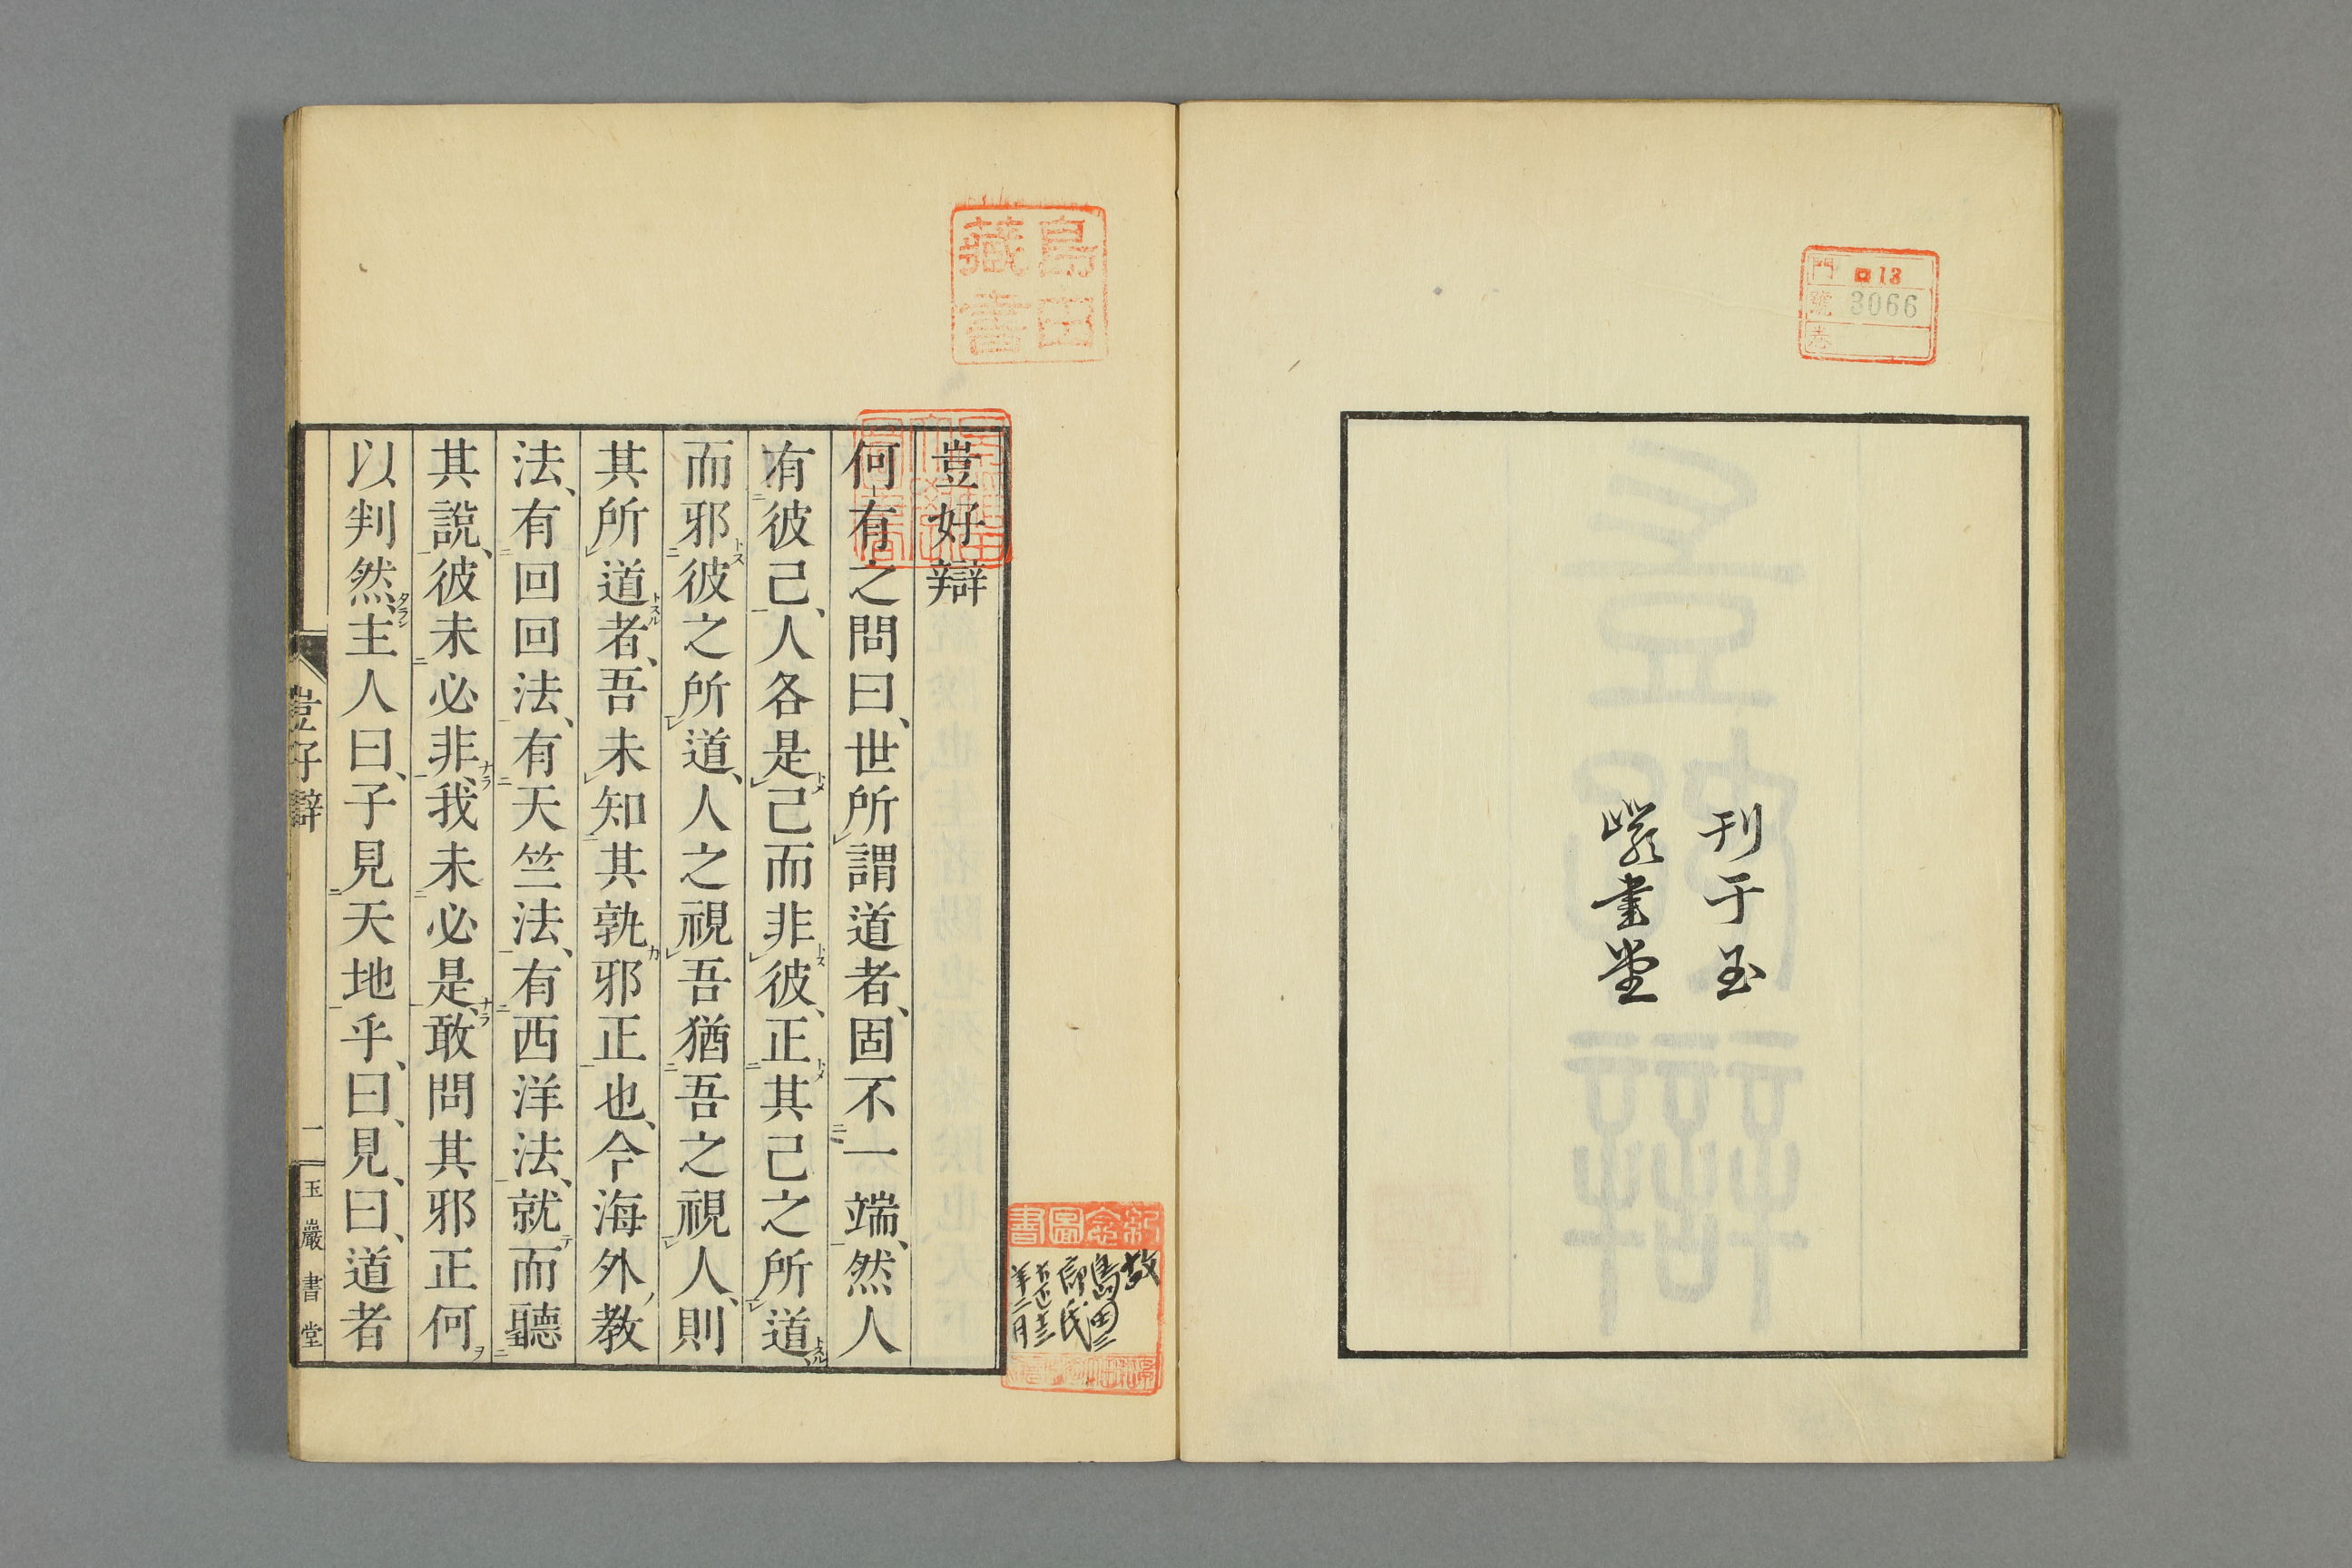 門 ロ13
號 3066
巻
刊于玉
巖書堂
島田
藏書
豈好辯
何有之問曰、世所謂道者、固不一端、然人
有彼己、人各是己而非彼、正其己之所道、
而邪彼之所道、人之視吾猶吾之視人、則
其所道者、吾未知其孰邪正也、今海外教
法、有回回法、有天竺法、有西洋法、就而聽
其說、彼未必非我未必是、敢問其邪正何
以判然、主人曰、子見天地乎、曰、見、曰、道者
豈好辯 一 玉巖書堂
紀念圖書
故
島田三
郎氏
大正十三
年二月